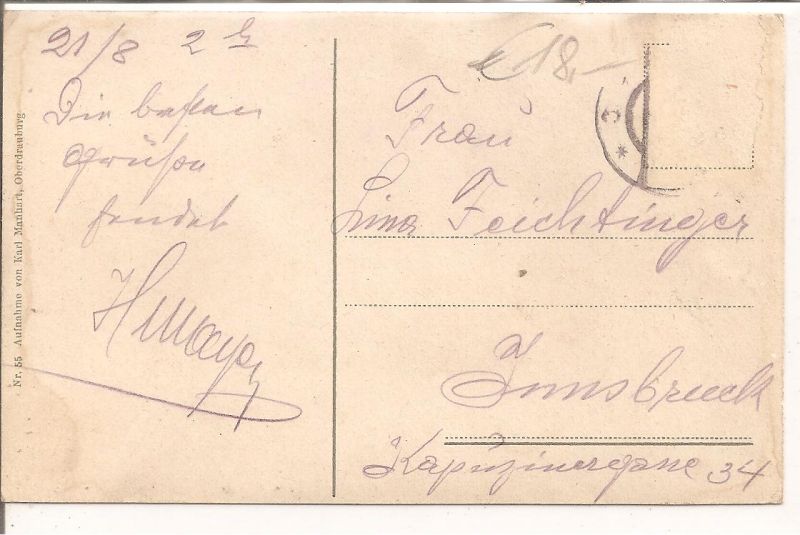 21/8 2
Die besten
Grüße
sendet
HMayer
Nr. 55 Aufnahme von Karl Manhart, Oberdrauburg
€ 18,-
Frau
Lina Feichtinger
Innsbruck
Kapuzinergasse 34